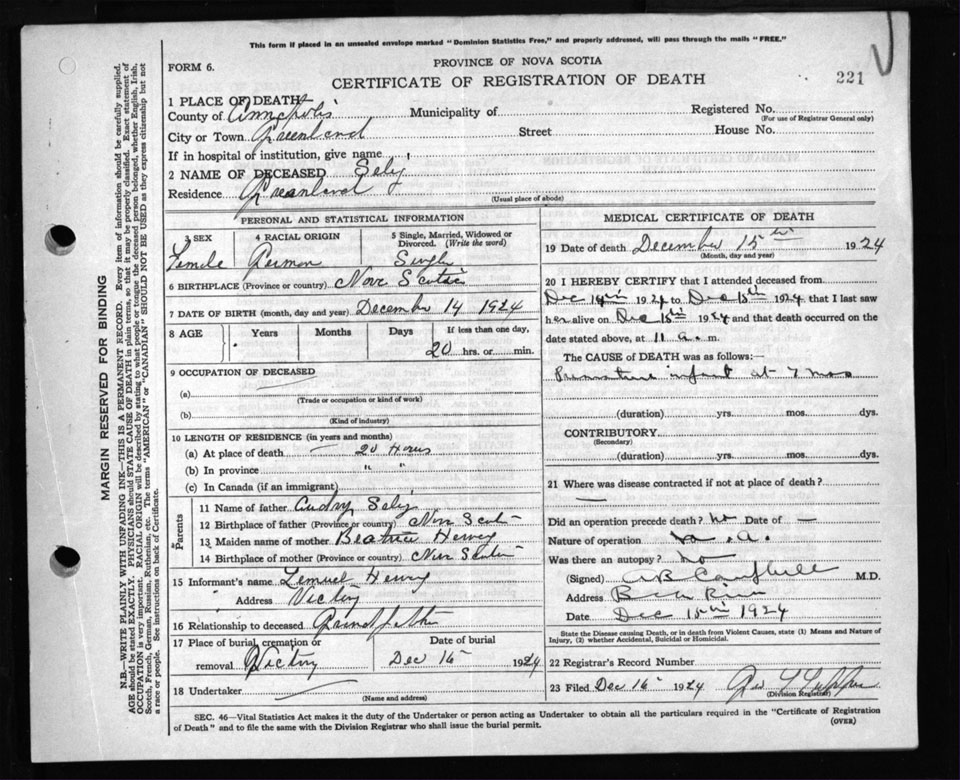 This form if placed in an unsealed envelope marked "Dominion Statistics Free," and properly addressed, will pass through the mails "FREE."
FORM 6.
PROVINCE OF NOVA SCOTIA
CERTIFICATE OF REGISTRATION OF DEATH
221
1 PLACE OF DEATH
County of Annapolis Municipality of Registered No.
(For use of Registrar General only)
City or Town Greenland Street House No.
If in hospital or institution, give name
2 NAME OF DECEASED Sely
Residence Greenland
(Usual place of abode)
PERSONAL AND STATISTICAL INFORMATION
3 SEX 4 RACIAL ORIGIN 5 Single, Married, Widowed or Divorced. (Write the word)
Female German Single
6 BIRTHPLACE (Province or country) Nova Scotia
7 DATE OF BIRTH (month, day and year) December 14 1924
8 AGE Years Months Days If less than one day,
20 hrs. or min.
9 OCCUPATION OF DECEASED
(a)
(Trade or occupation or kind of work)
(b)
(Kind of industry)
10 LENGTH OF RESIDENCE (in years and months)
(a) At place of death — 20 Hours
(b) In province " "
(c) In Canada (if an immigrant)
Parents
11 Name of father Sely
12 Birthplace of father (Province or country) Nova Scotia
13 Maiden name of mother Beatrice Henry
14 Birthplace of mother (Province or country) Nova Scotia
15 Informant's name Lemuel Henry
Address Victory
16 Relationship to deceased Grandfather
17 Place of burial, cremation or removal Victory
Date of burial
Dec 16 1924
18 Undertaker
(Name and address)
MEDICAL CERTIFICATE OF DEATH
19 Date of death December 15th 1924
(Month, day and year)
20 I HEREBY CERTIFY that I attended deceased from
Dec 14th 1924 to Dec 15th 1924 that I last saw
her alive on Dec 15th 1924 and that death occurred on the
date stated above, at 11 a. m.
The CAUSE of DEATH was as follows:
Premature infant at 7 mos
(duration) yrs. mos. dys.
CONTRIBUTORY
(Secondary)
(duration) yrs. mos. dys.
21 Where was disease contracted if not at place of death?
—
Did an operation precede death? no Date of —
Nature of operation
Was there an autopsy? no
(Signed) M.D.
Address Bear River
Date Dec 15th 1924
State the Disease causing Death, or in death from Violent Causes, state (1) Means and Nature of
Injury, (2) whether Accidental, Suicidal or Homicidal.
22 Registrar's Record Number
23 Filed Dec 16 1924
(Division Registrar)
SEC. 46—Vital Statistics Act makes it the duty of the Undertaker or person acting as Undertaker to obtain all the particulars required in the "Certificate of Registration
of Death" and to file the same with the Division Registrar who shall issue the burial permit.
(OVER)
MARGIN RESERVED FOR BINDING
N.B.—WRITE PLAINLY WITH UNFADING INK—THIS IS A PERMANENT RECORD. Every item of information should be carefully supplied.
AGE should be stated EXACTLY. PHYSICIANS should STATE CAUSE OF DEATH in plain terms, so that it may be properly classified. Exact statement of
OCCUPATION is very important. RACIAL ORIGIN will be described by stating to what people or tongue the deceased person belonged, whether English, Irish,
Scotch, French, German, Russian, Ruthenian, etc. The terms "AMERICAN" or "CANADIAN" SHOULD NOT BE USED as they express citizenship but not
a race or people. See instructions on back of Certificate.